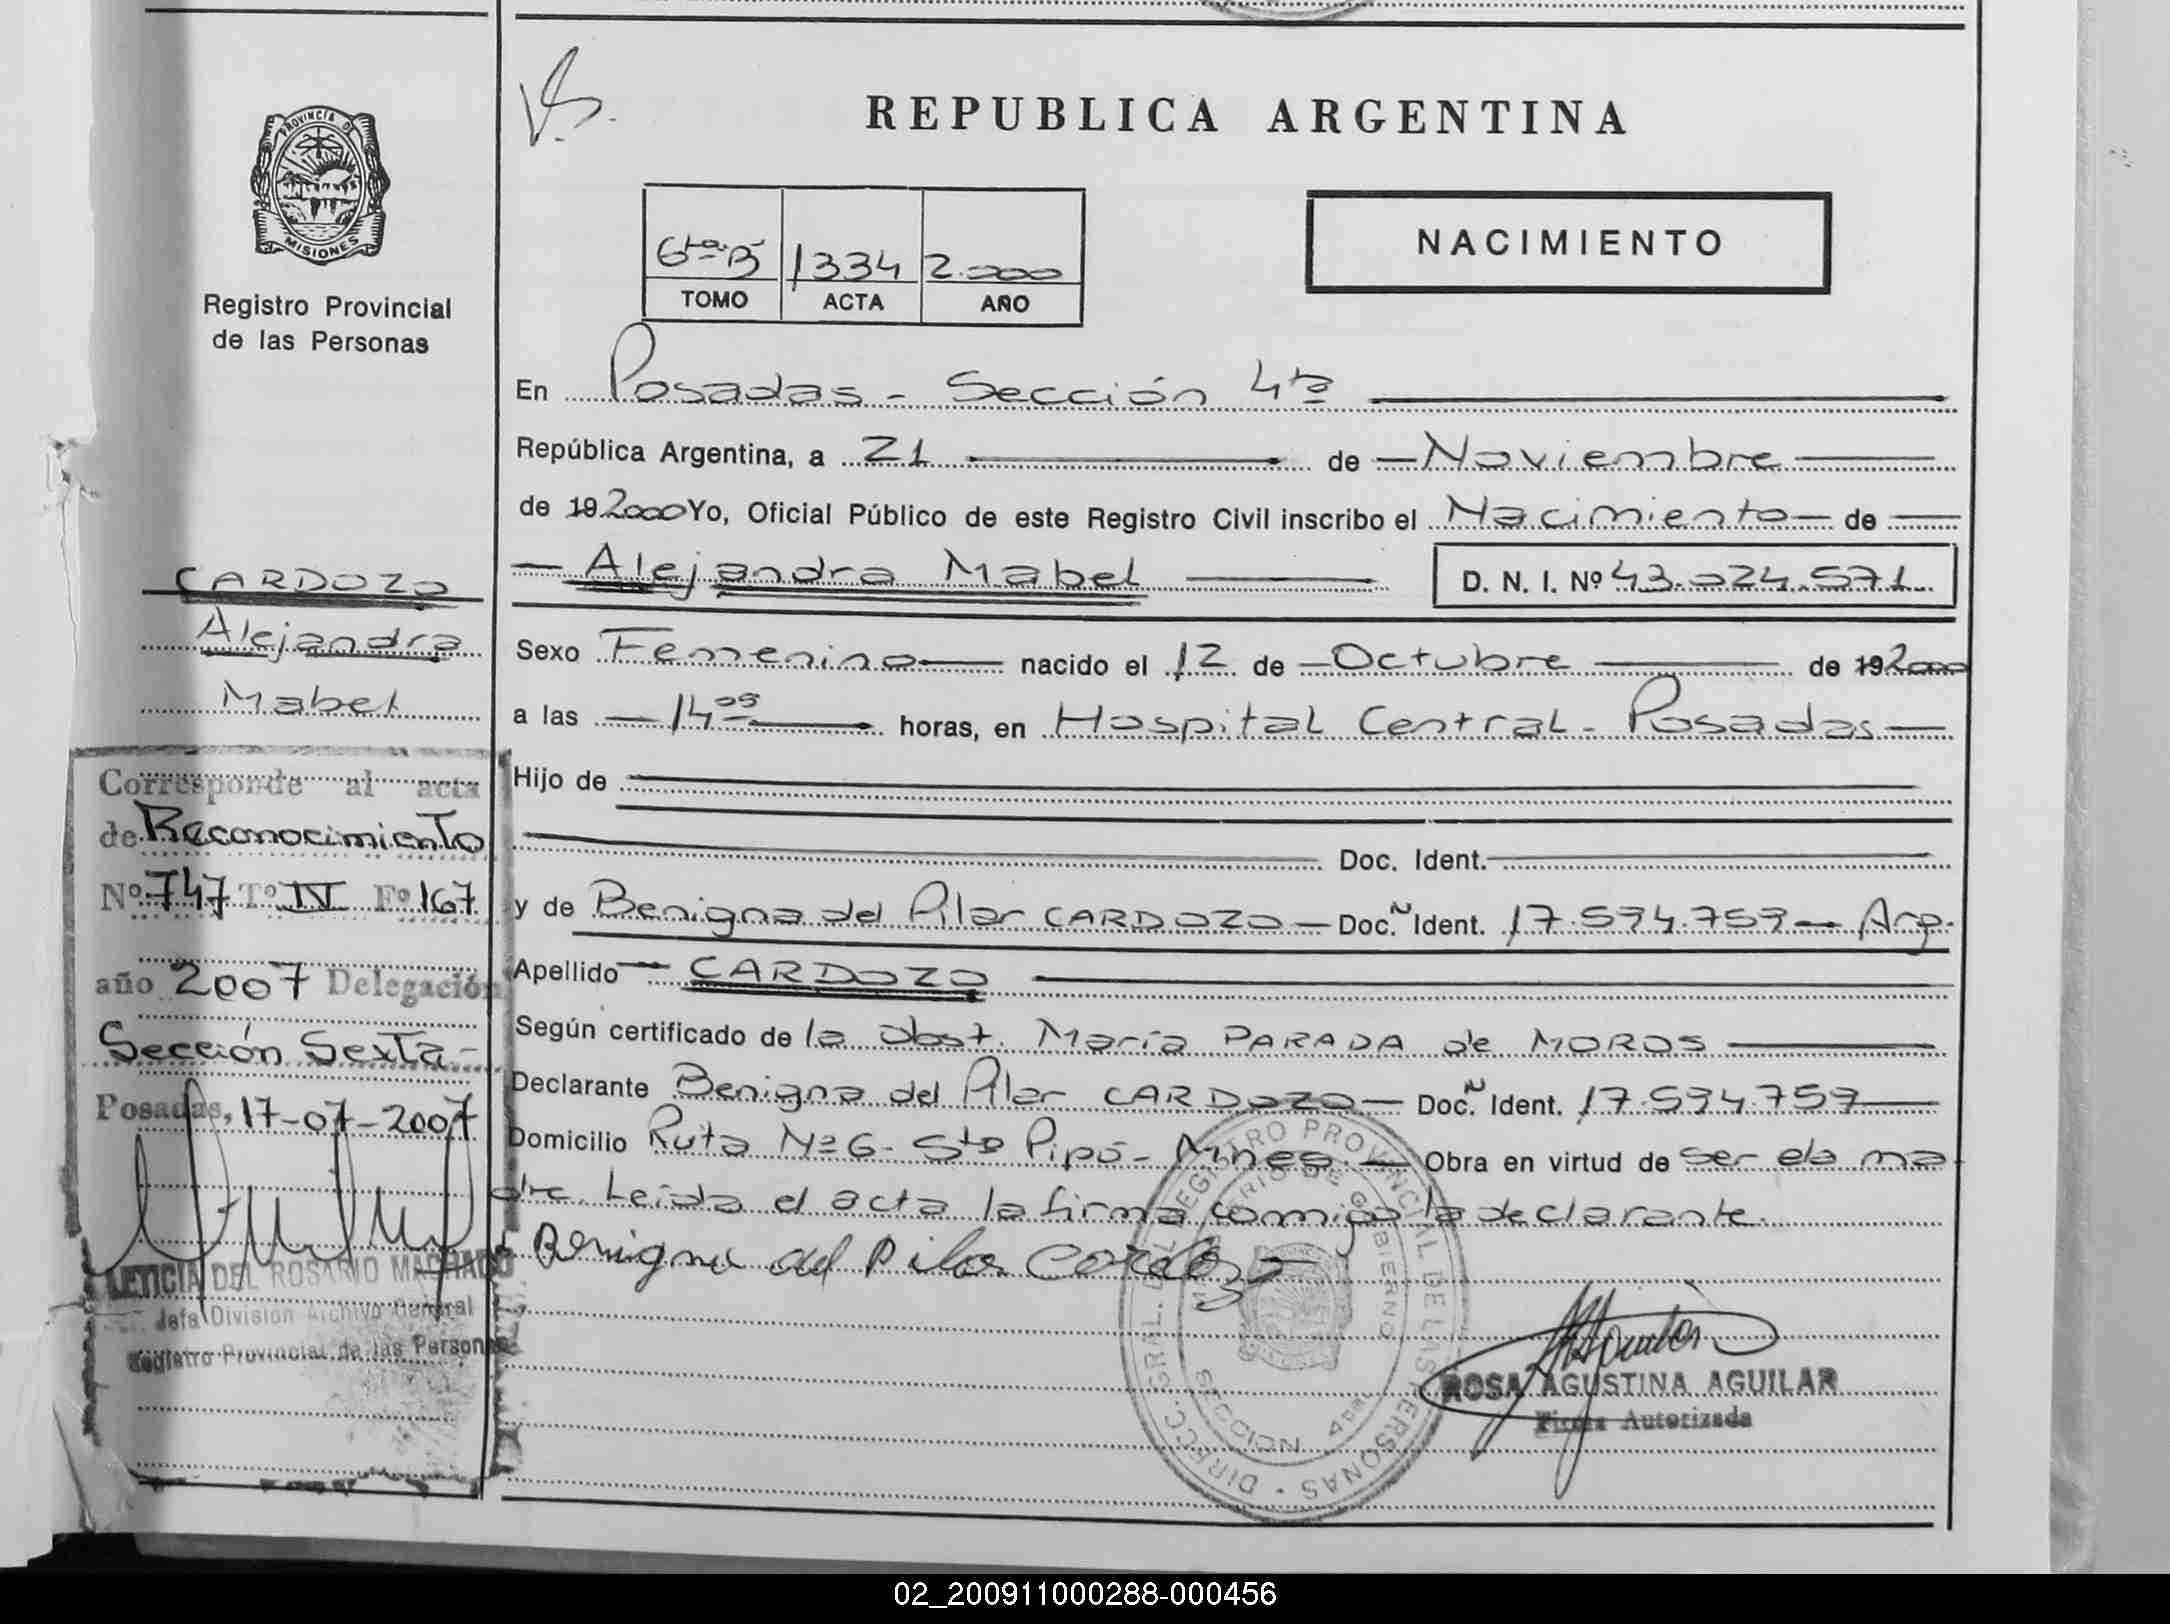 PROVINCIA DE
MISIONES
Registro Provincial
de las Personas
CARDOZO
Alejandra
Mabel
Corresponde al acta
de Reconocimiento
Nº 747 Tº IV Fº 167
año 2007 Delegación
Sección Sexta-
Posadas, 17-07-2007
LETICIA DEL ROSARIO MACHADO
Jefa División Archivo General
Registro Provincial de las Personas
REPUBLICA ARGENTINA
6to B 1334 2.000
TOMO ACTA AÑO
NACIMIENTO
En Posadas - Sección 4ta
República Argentina, a 21 de Noviembre
de 19 2000 Yo, Oficial Público de este Registro Civil inscribo el Nacimiento de
Alejandra Mabel D. N. I. Nº 43.024.571
Sexo Femenino nacido el 12 de Octubre de 19 2000
a las 14 05 horas, en Hospital Central - Posadas
Hijo de
Doc. Ident.
y de Benigna del Pilar CARDOZO Doc. Ident. 17.594.759 - Arg.
Apellido CARDOZO
Según certificado de la obst. María PARADA de MOROS
Declarante Benigna del Pilar CARDOZO Doc. Ident. 17.594.759
Domicilio Ruta Nº 6 - Sto Pipó - Mnes. Obra en virtud de ser ela ma
dre. Leída el acta la firma comigo la declarante.
Benigna del Pilar Cardozo
DIRECC. GRAL. DEL REGISTRO PROVINCIAL DE LAS PERSONAS
MINISTERIO DE GOBIERNO
SECCION 4ta
ROSA AGUSTINA AGUILAR
Firma Autorizada
02_200911000288-000456